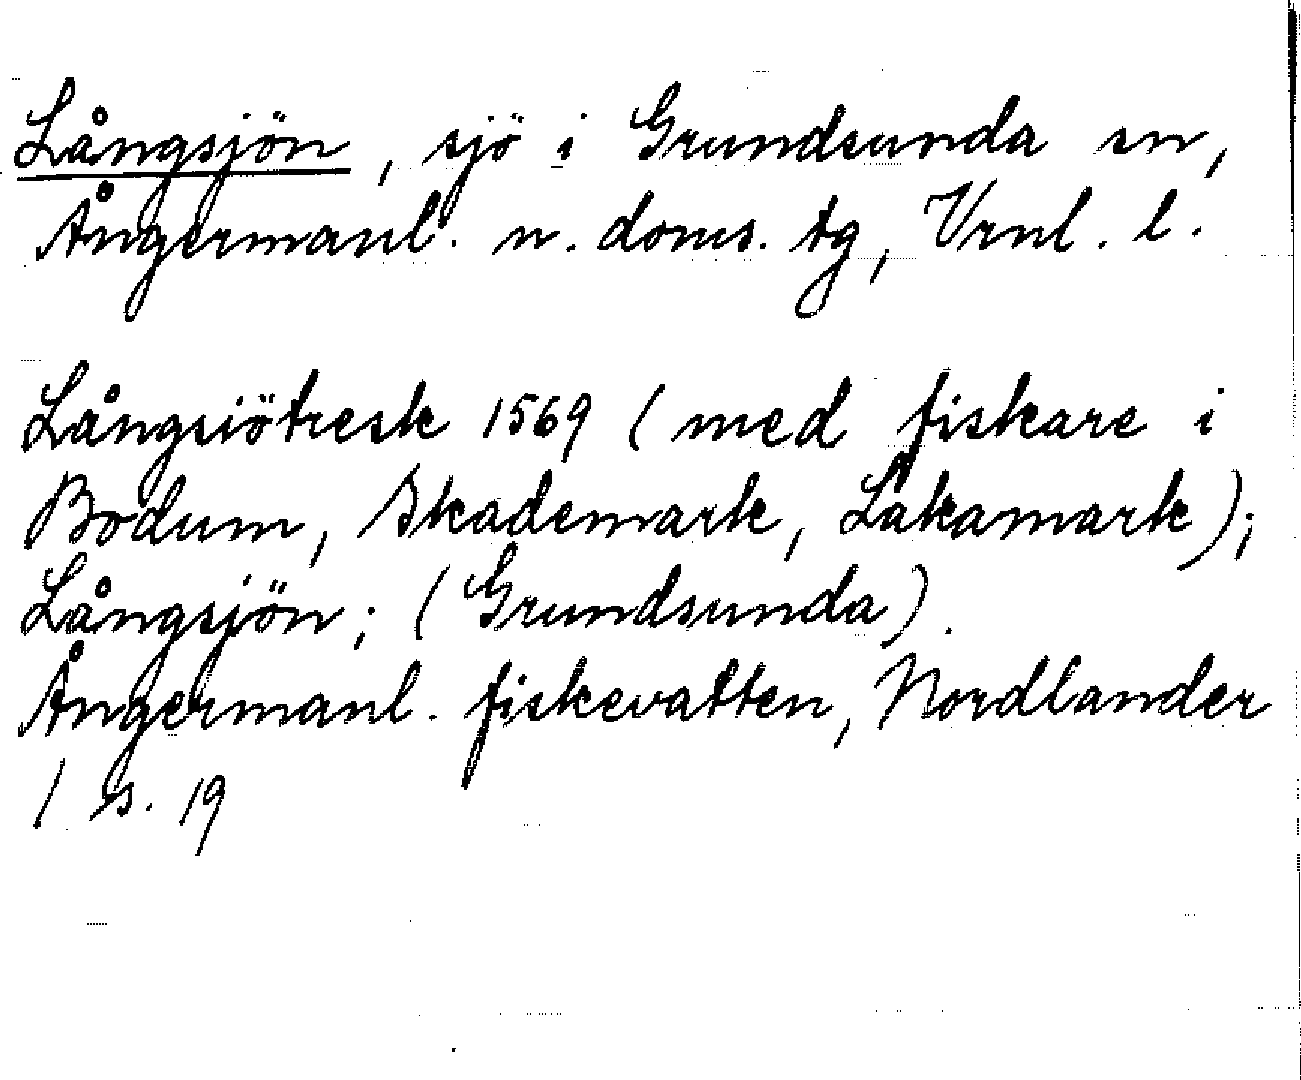 Långsjön, sjö i Grundsunda sn,
Ångermanl. n. doms. tg, Vrnl. l.
Långsiötresk 1569 (med fiskare i
Bodum, Skademark, Låkamark);
Långsjön; (Grundsunda).
Ångermanl. fiskevatten, Nordlander
/ s. 19